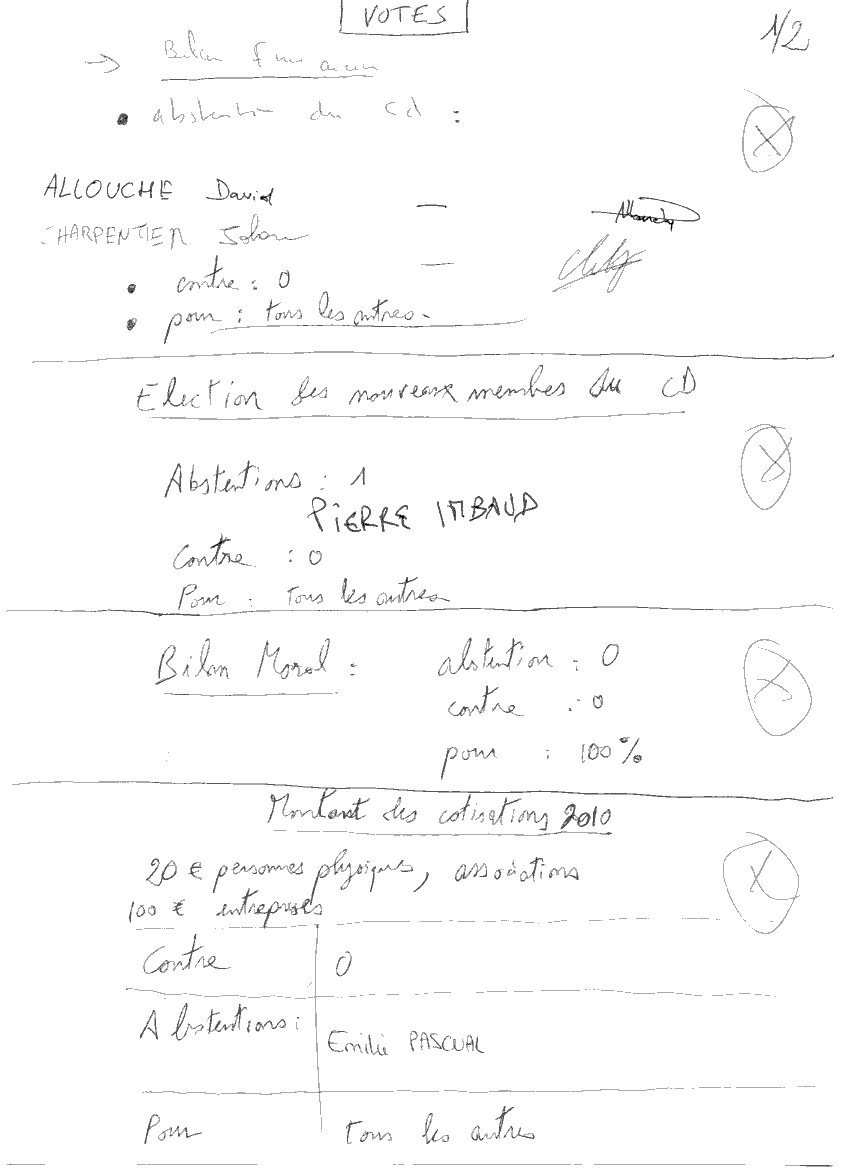 VOTES
1/2
→ Bilan financier
• abstention du Cd :
ALLOUCHE David —
CHARPENTIER Johan —
• contre : 0
• pour : tous les autres.
Election des nouveaux membres du CD
Abstentions : 1
PIERRE IMBAUD
Contre : 0
Pour : Tous les autres
Bilan Moral : abstention : 0
contre : 0
pour : 100%
Montant des cotisations 2010
20 € personnes physiques, associations
100 € entreprises
Contre 0
Abstentions : Emilie PASCUAL
Pour tous les autres